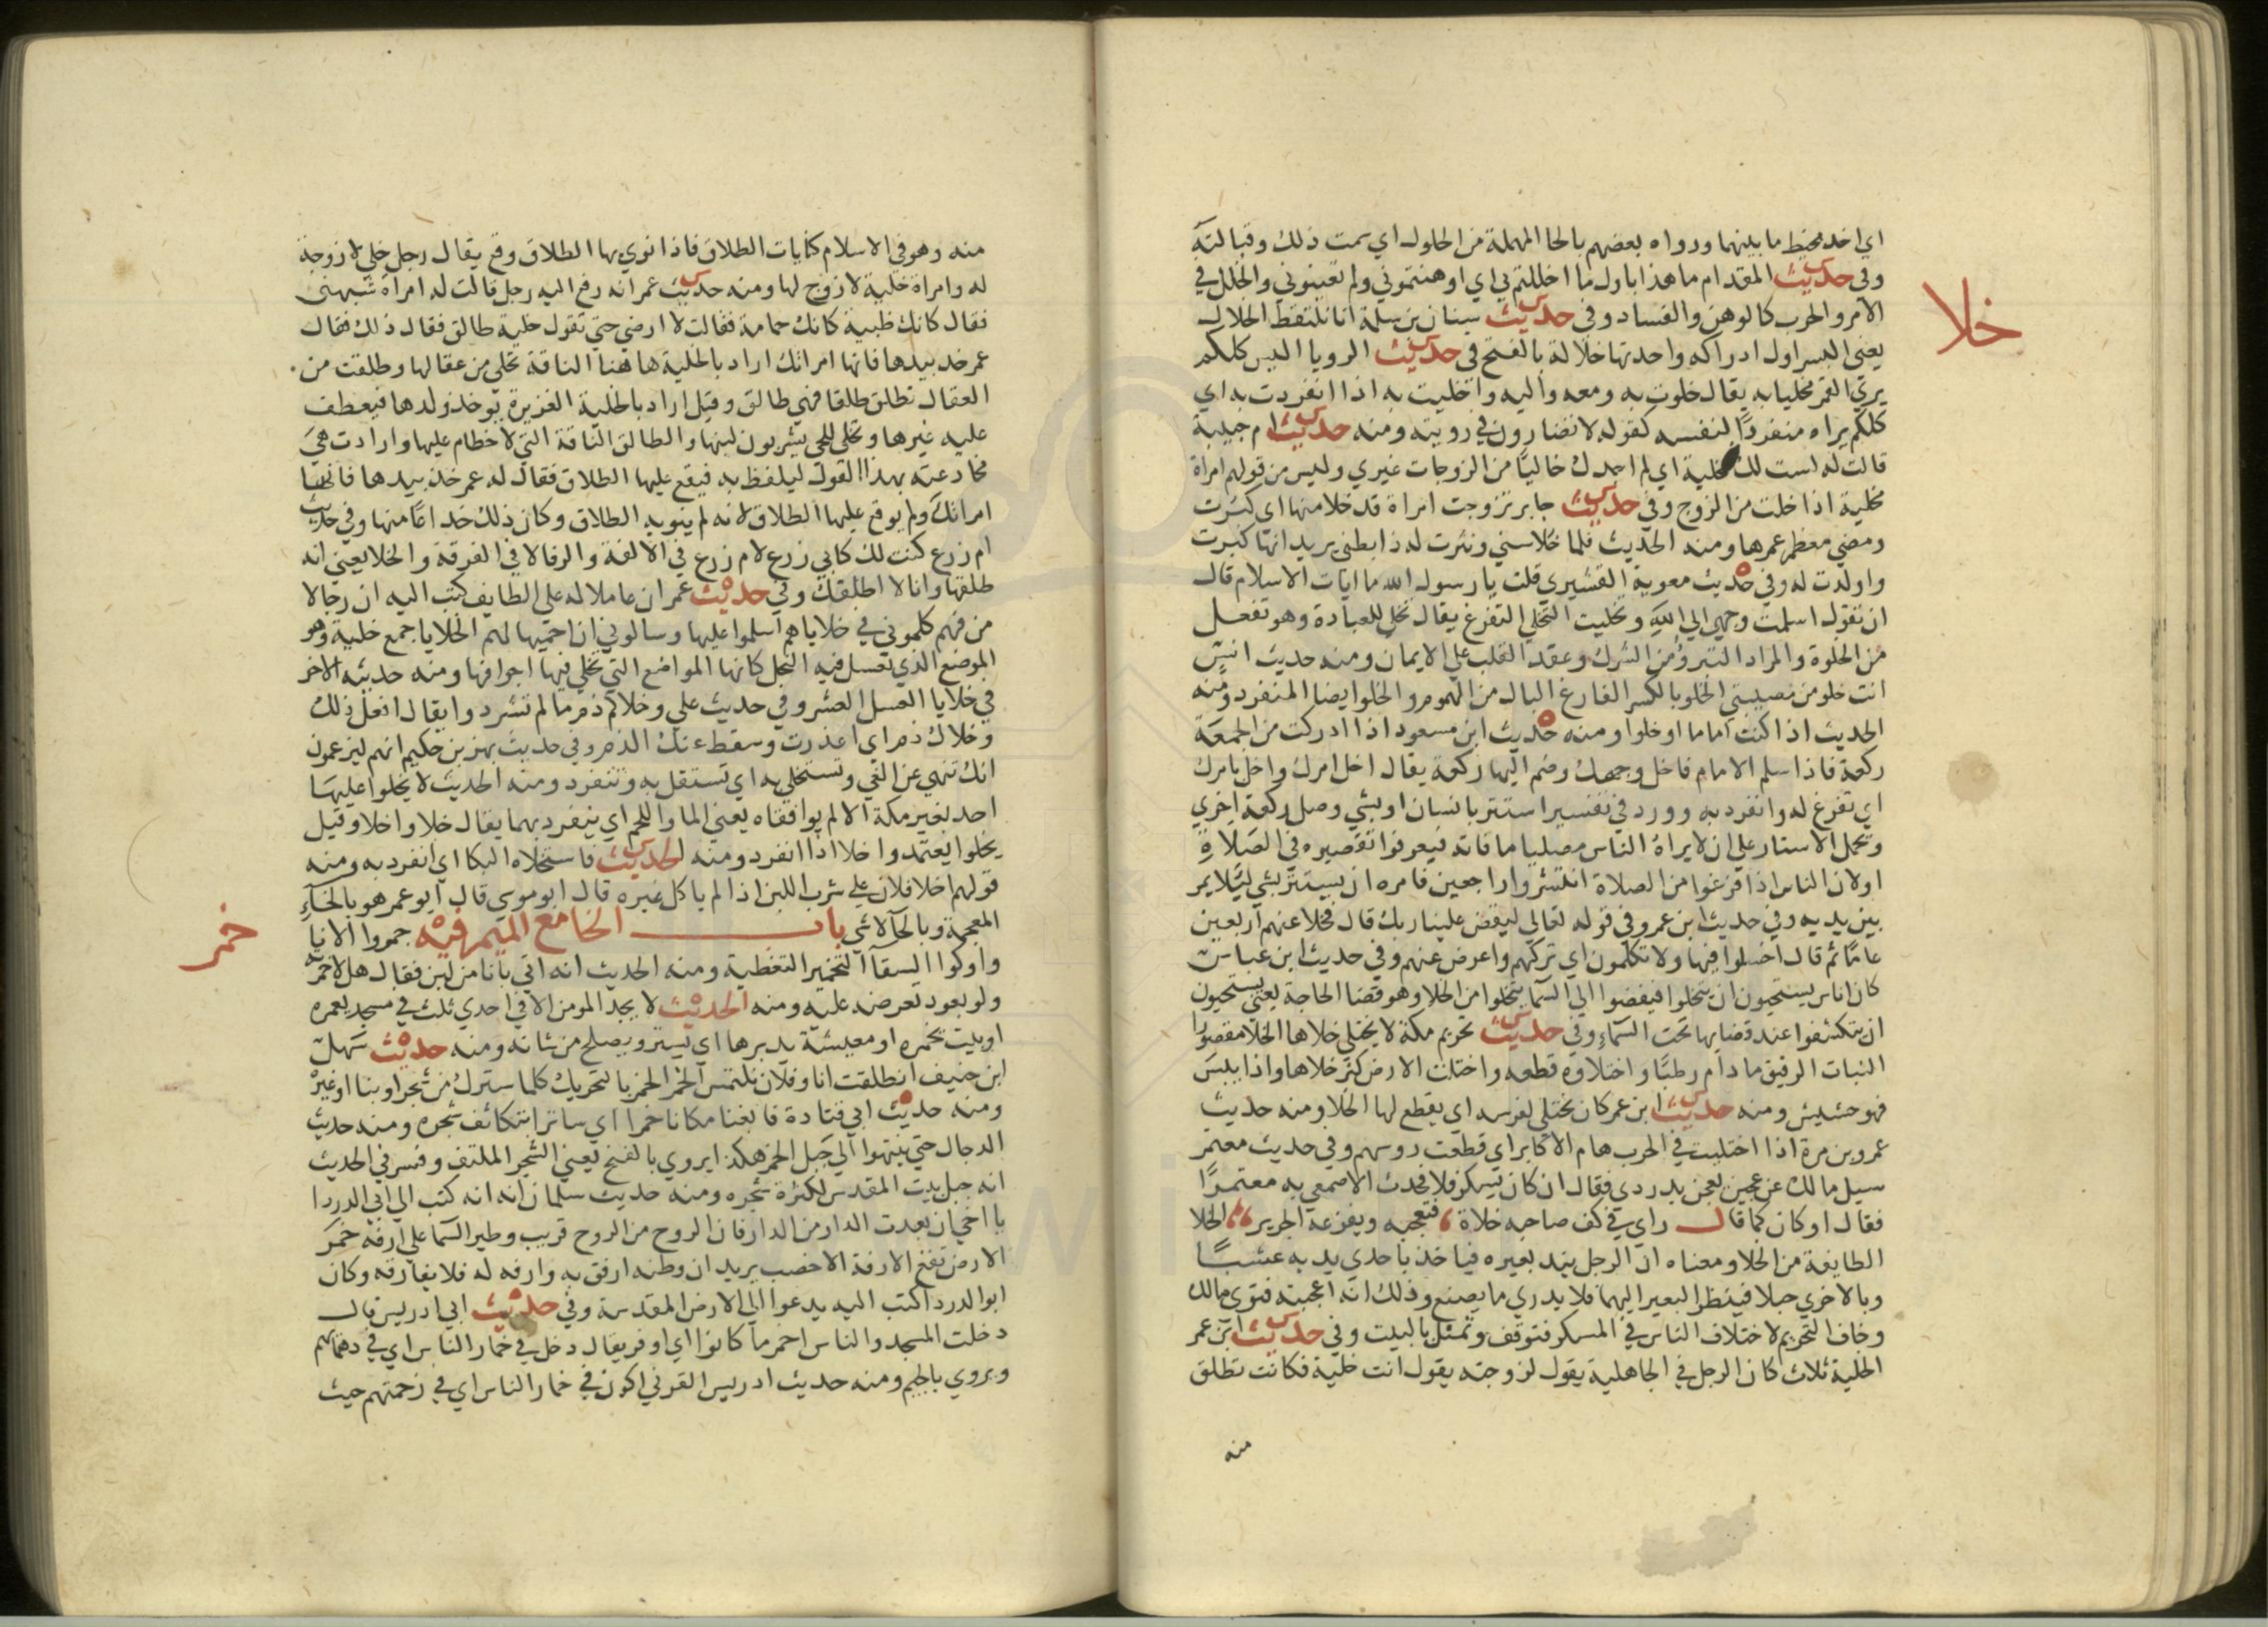 خلا
اي اخد مخيط ما بينهما ورواه بعضهم بالحا المهملة من الحلول اي سمت ذلك وقبالته
وفى حديث المقدام ما هذا باول ما اخللتم بي اي اوهنتموني ولم تعينوني والخلل في
الامر والحرب كالوهن والفساد وفى حديث سنان بن سلمة انا نلتقط الخلال
يعنى البسر اول ادراكه واحدتها خلالة بالفتح فى حديث الرويا اليس كلكم
يري القمر مخليا به يقال خلوت به ومعه واليه واخليت به اذا انفردت به اي
كلكم يراه منفردًا لنفسه كقوله لا تضارون في رويته ومنه حديث ام حبيبة
قالت له لست لك مخلية اي لم اجدك خاليًا من الزوجات غيري وليس من قولهم امراة
مخلية اذا خلت من الزوج وفي حديث جابر تزوجت امراة قد خلا منها اي كبرت
ومضي معظم عمرها ومنه الحديث فلما خلا سني ونثرت له ذا بطني يريد انها كبرت
واولدت له وفي حديث معوية القشيري قلت يا رسول الله ما ايات الاسلام قال
ان تقول اسلمت وجهي الي الله وتخليت التخلي التفرغ يقال تخل للعبادة وهو تفعل
من الخلوة والمراد التبرؤ من الشرك وعقد القلب علي الايمان ومنه حديث انس
انت خلو من مصيبتي الخلو بالكسر الفارغ البال من الهموم والخلو ايضا المنفرد ومنه
الحديث اذا كنت اماما او خلوا ومنه حديث ابن مسعود اذا ادركت من الجمعة
ركعة فاذا سلم الامام فاخل وجهك وضم اليها ركعة يقال اخل امرك واخل بامرك
اي تفرغ له وانفرد به وورد في تفسير استتر بانسان او بشي وصل ركعة اخري
وتحمل الاستتار علي ان لا يراه الناس مصليا ما فاته فيعرفوا تقصيره في الصلاة
او لان الناس اذا فرغوا من الصلاة انتشروا راجعين فامره ان يستتر بشي ليلا يمر
بين يديه وفي حديث ابن عمرو في قوله تعالي ليقض علينا ربك قال فخلا عنهم اربعين
عامًا ثم قال اخسلوا فيها ولا تكلمون اي تركهم واعرض عنهم وفي حديث ابن عباس
كان اناس يستحيون ان يتخلوا فيفضوا الي السما يتخلوا من الخلا وهو قضا الحاجة يعني يستحيون
ان يتكشفوا عند قضايها تحت السماء وفي حديث تحريم مكة لا يختلي خلاها الخلا مقصورا
النبات الرقيق ما دام رطبًا واختلاوه قطعه واختلت الارض كثر خلاها واذا يبس
فهو حشيش ومنه حديث ابن عمر كان يختلي لفرسه اي يقطع لها الخلا ومنه حديث
عمرو بن مرة اذا اختليت في الحرب هام الاكابر اي قطعت روسهم وفي حديث معتمر
سيل مالك عن عجين يعجن بدردي فقال ان كان يسكر فلا فحدث الاصمعي به معتمرًا
فقال او كان كما قال راي في كف صاحبه خلاة فتعجبه ويفزعه الجرير الخلا
الطايفة من الخلا ومعناه ان الرجل يند بعيره فياخذ باحدي يديه عشبًا
وبالاخري حبلا فينظر البعير اليهما فلا يدري ما يصنع وذلك انه اعجبته فتوى مالك
وخاف التحريم لاختلاف الناس في المسكر فتوقف وتمثل بالبيت وفي حديث ابن عمر
الخلية ثلاث كان الرجل في الجاهلية يقول لزوجته يقول انت خلية فكانت تطلق
منه
منه وهو في الاسلام كنايات الطلاق فاذا نوي بها الطلاق وقع يقال رجل خلي لا زوجة
له وامراة خلية لا زوج لها ومنه حديث عمر انه رفع اليه رجل قالت له امراة شبهنى
فقال كانك ظبية كانك حمامة فقالت لا ارضي حتي تقول خلية طالق فقال ذلك فقال
عمر خذ بيدها فانها امراتك اراد بالخلية هاهنا الناقة تخلي من عقالها وطلقت من
العقال تطلق طلقا فهي طالق وقيل اراد بالخلية الغزيرة يوخذ ولدها فيعطف
عليه غيرها وتخلى للحي يشربون لبنها والطالق الناقة التي لا خطام عليها وارادت هي
مخادعته بهذا القول ليلفظ به فيقع عليها الطلاق فقال له عمر خذ بيدها فانها
امراتك ولم يوقع عليها الطلاق لانه لم ينو به الطلاق وكان ذلك خداعًا منها وفي حديث
ام زرع كنت لك كابي زرع لام زرع في الالفة والرفا لا في الفرقة والخلا يعني انه
طلقها وانا لا اطلقك وفي حديث عمر ان عاملا له علي الطايف كتب اليه ان رجالا
من فهم كلموني في خلايا لهم اسلموا عليها وسالوني ان احميها لهم الخلايا جمع خلية وهو
الموضع الذي تعسل فيه النحل كانها المواضع التي تخلي فيها اجوافها ومنه حديثه الاخر
في خلايا العسل العشر وفي حديث علي وخلاكم ذم ما لم تشردوا يقال افعل ذلك
وخلاك ذم اي اعذرت وسقط عنك الذم وفي حديث بهز بن حكيم انهم ليزعمون
انك تنهي عن الغي وتستخلي به اي تستقل به وتنفرد ومنه الحديث لا يخلوا عليها
احد بغير مكة الا لم يوافقاه يعني الما واللحم اي ينفرد بهما يقال خلا واخلا وقيل
يخلوا يعتمد واخلا اذا انفرد ومنه الحديث فاستخلاه البكا اي انفرد به ومنه
قولهم اخلا فلان علي شرب اللبن اذا لم ياكل غيره قال ابو موسي قال ابو عمر هو بالخاء
المعجمة وبالحاء لا شي باب الخا مع الميم فيه خمروا الانا
خمر
واوكوا السقا التخمير التغطية ومنه الحديث انه اتي بانا من لبن فقال هلا خمرته
ولو بعود تعرضه عليه ومنه الحديث لا يجد المومن الا في احدي ثلث في مسجد يعمره
او بيت يخمره او معيشة يدبرها اي يستره ويصلح من شانه ومنه حديث سهل
ابن حنيف انطلقت انا وفلان نلتمس الخمر الخمر بالتحريك كلما سترك من شجر او بنا او غيره
ومنه حديث ابي قتادة فابغنا مكانا خمرا اي ساترا بتكاثف شجره ومنه حديث
الدجال حتي ينتهوا الي جبل الخمر هكذا يروي بالفتح يعني الشجر الملتف وفسر في الحديث
انه جبل بيت المقدس لكثرة شجره ومنه حديث سلمان انه انه كتب الي ابي الدردا
يا اخي ان بعدت الدار من الدار فان الروح من الروح قريب وطير السما علي ارفه خمر
الارض تقع الارفة الاخصب يريد ان وطنه ارفق به وارفه له فلا يفارقه وكان
ابو الدردا كتب اليه يدعوا الي الارض المقدسة وفي حديث ابي ادريس قال
دخلت المسجد والناس اخمر ما كانوا اي اوفر يقال دخل في خمار الناس اي في دهمائهم
ويروي بالجيم ومنه حديث ادريس القرني اكون في خمار الناس اي في زحمتهم حيث